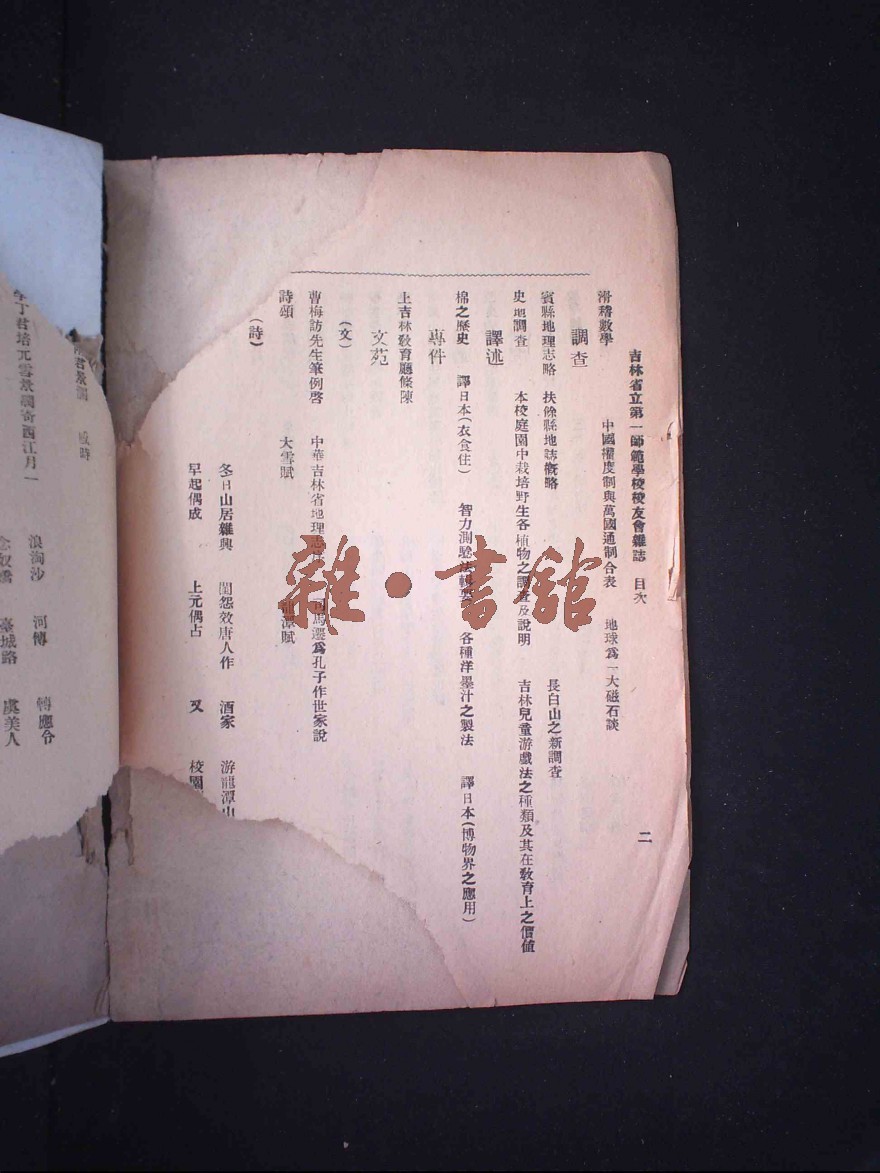 吉林省立第一師範學校校友會雜誌　目次　二
滑稽數學　中國權度制與萬國通制合表　地球爲一大磁石談
調查
賓縣地理志略　扶餘縣地誌概略　長白山之新調查
史地調查　本校庭園中栽培野生各植物之調查及說明　吉林兒童游戲法之種類及其在敎育上之價値
譯述
棉之歷史　譯日本(衣食住)　智力測驗法　各種洋墨汁之製法　譯日本(博物界之應用)
專件
上吉林敎育廳條陳
文苑
(文)
曹梅訪先生筆例啓　中華吉林省地理志　司馬遷爲孔子作世家說
詩頌　大雪賦　龍潭賦
(詩)
冬日山居雜興　閨怨效唐人作　酒家　游龍潭山
早起偶成　上元偶占　又　校園
感時
河傳　轉應令
丁君培元雪景調寄西江月一　浪淘沙
臺城路　虞美人
雜·書館